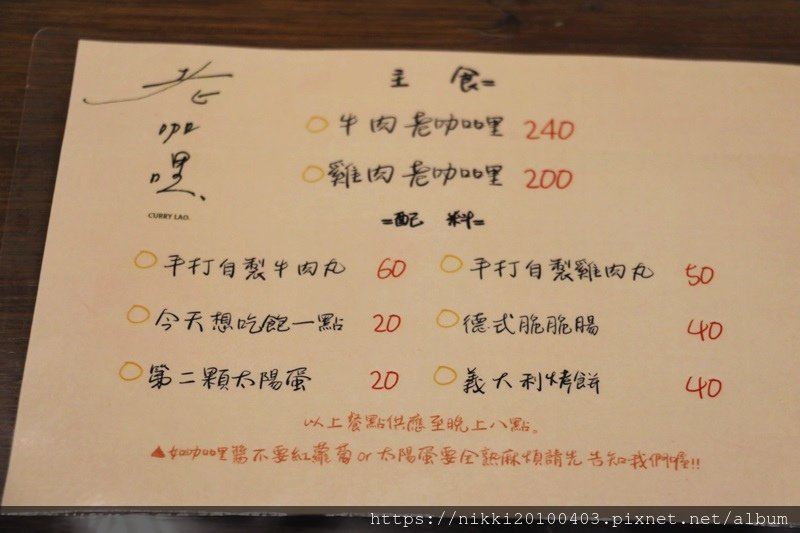 老咖哩、
CURRY LAO.
主食=
牛肉老咖哩 240
雞肉老咖哩 200
=配料=
手打自製牛肉丸 60 手打自製雞肉丸 50
今天想吃飽一點 20 德式脆脆腸 40
第二顆太陽蛋 20 義大利烤餅 40
以上餐點供應至晚上八點。
▲如咖哩醬不要紅蘿蔔or太陽蛋要全熟麻煩請先告知我們喔!!
https://nikki20100403.pixnet.net/album